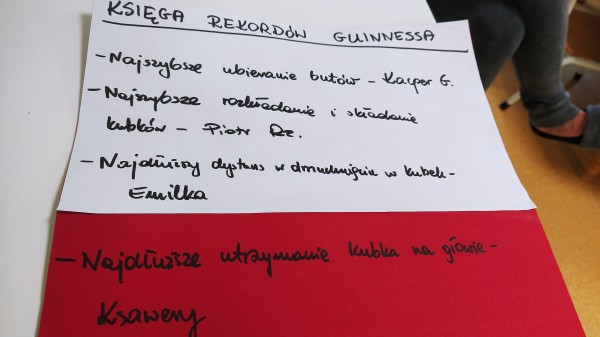 KSIĘGA REKORDÓW GUINNESSA
- Najszybsze ubieranie butów - Kacper G.
- Najszybsze rozkładanie i składanie
kubków - Piotr Rz.
- Najdłuższy dystans w dmuchnięciu w kubek -
Emilka
- Najdłuższe utrzymanie kubka na głowie -
Ksawery